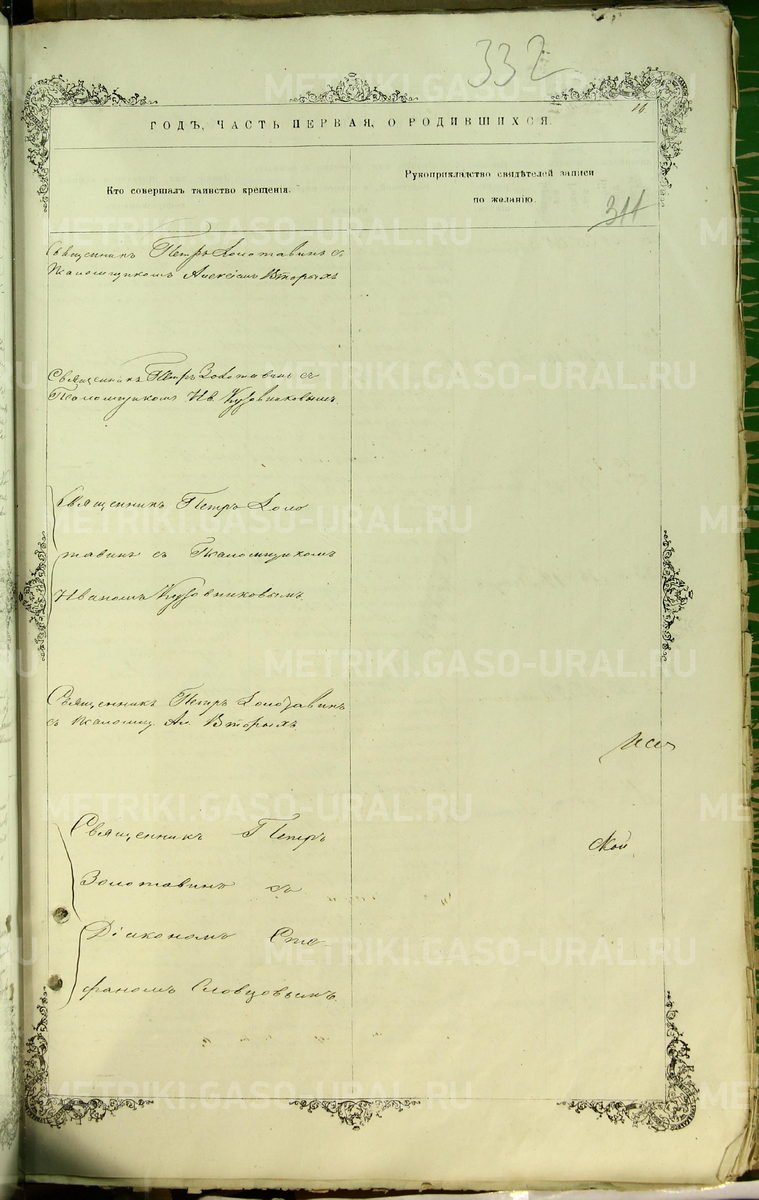 332
16
ГОДЪ, ЧАСТЬ ПЕРВАЯ, О РОДИВШИХСЯ.
Кто совершалъ таинство крещенія.
Рукоприкладство свидѣтелей записи
по желанію
311
Священникъ Петръ Золотавинъ съ
Псаломщикомъ Алексіемъ Вторыхъ
Священникъ Петръ Золотавинъ съ
Псаломщикомъ Ив. Кузовниковымъ.
Священникъ Петръ Золо
тавинъ съ Псаломщикомъ
Иваномъ Кузовниковымъ.
Священникъ Петръ Золотавинъ
съ Псаломщ. Ал. Вторыхъ
Священникъ Петръ
Золотавинъ съ
Діакономъ Сте
фаномъ Словцовымъ.
METRIKI.GASO-URAL.RU